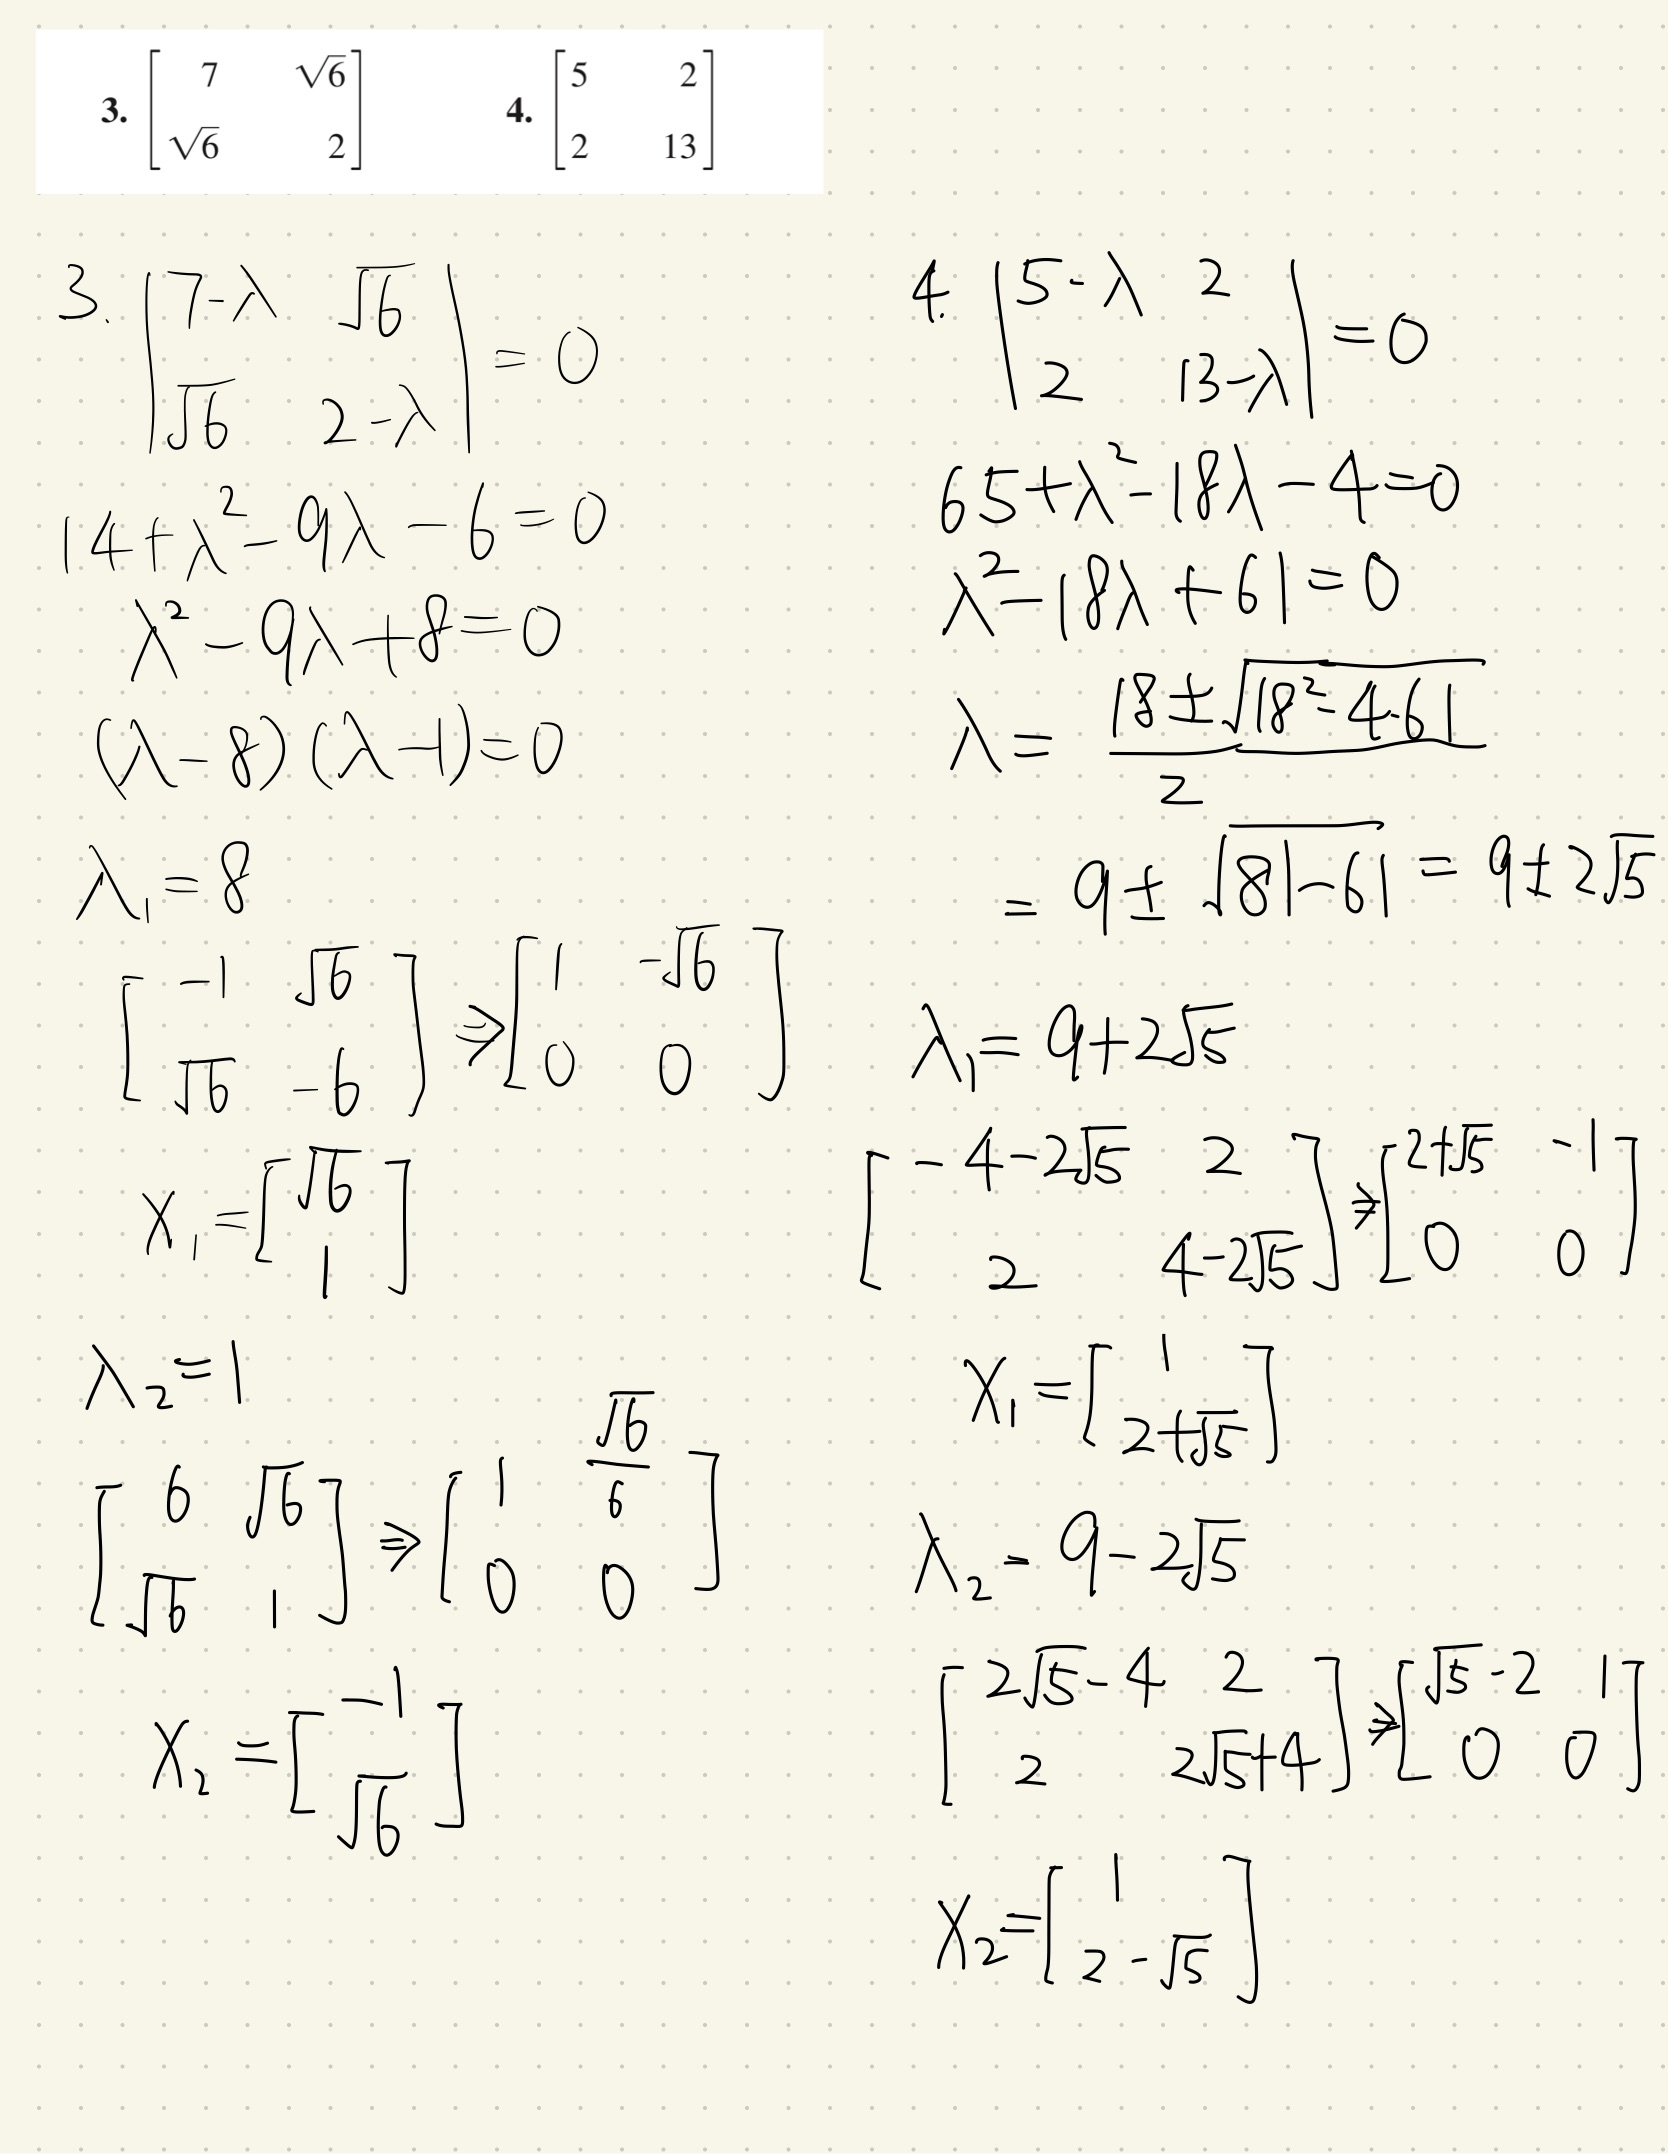 3. [7 √6; √6 2] 4. [5 2; 2 13]
3. |7-λ √6; √6 2-λ| = 0
14+λ²-9λ-6=0
λ²-9λ+8=0
(λ-8)(λ-1)=0
λ₁=8
[-1 √6; √6 -6] ⇒ [1 -√6; 0 0]
X₁=[√6; 1]
λ₂=1
[6 √6; √6 1] ⇒ [1 √6/6; 0 0]
X₂=[-1; √6]
4. |5-λ 2; 2 13-λ| =0
65+λ²-18λ-4=0
λ²-18λ+61=0
λ= (18±√(18²-4·61))/2
= 9±√(81-61) = 9±2√5
λ₁= 9+2√5
[-4-2√5 2; 2 4-2√5] ⇒ [2+√5 -1; 0 0]
X₁=[1; 2+√5]
λ₂= 9-2√5
[2√5-4 2; 2 2√5+4] ⇒ [√5-2 1; 0 0]
X₂=[1; 2-√5]